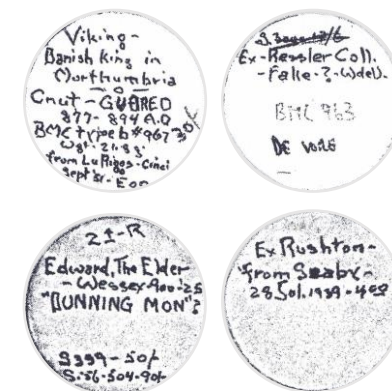 Viking-
Danish King in
Northumbria
Cnut-GUĐRED
877-894 A.D
BMC type b#967
Wgt. 21.83
from Lu Riggs-Cinci
Sept
Ex-Ressler Coll.
-Fake-?-(Wdell)
BMC 963
DE VOLE
21-R
Edward, The Elder
-Wessex 900-25
"BUNNING MON"?
S399-50/-
S.'56-504-90/-
Ex Rushton-
from Seaby-
28 Jol. 1939-